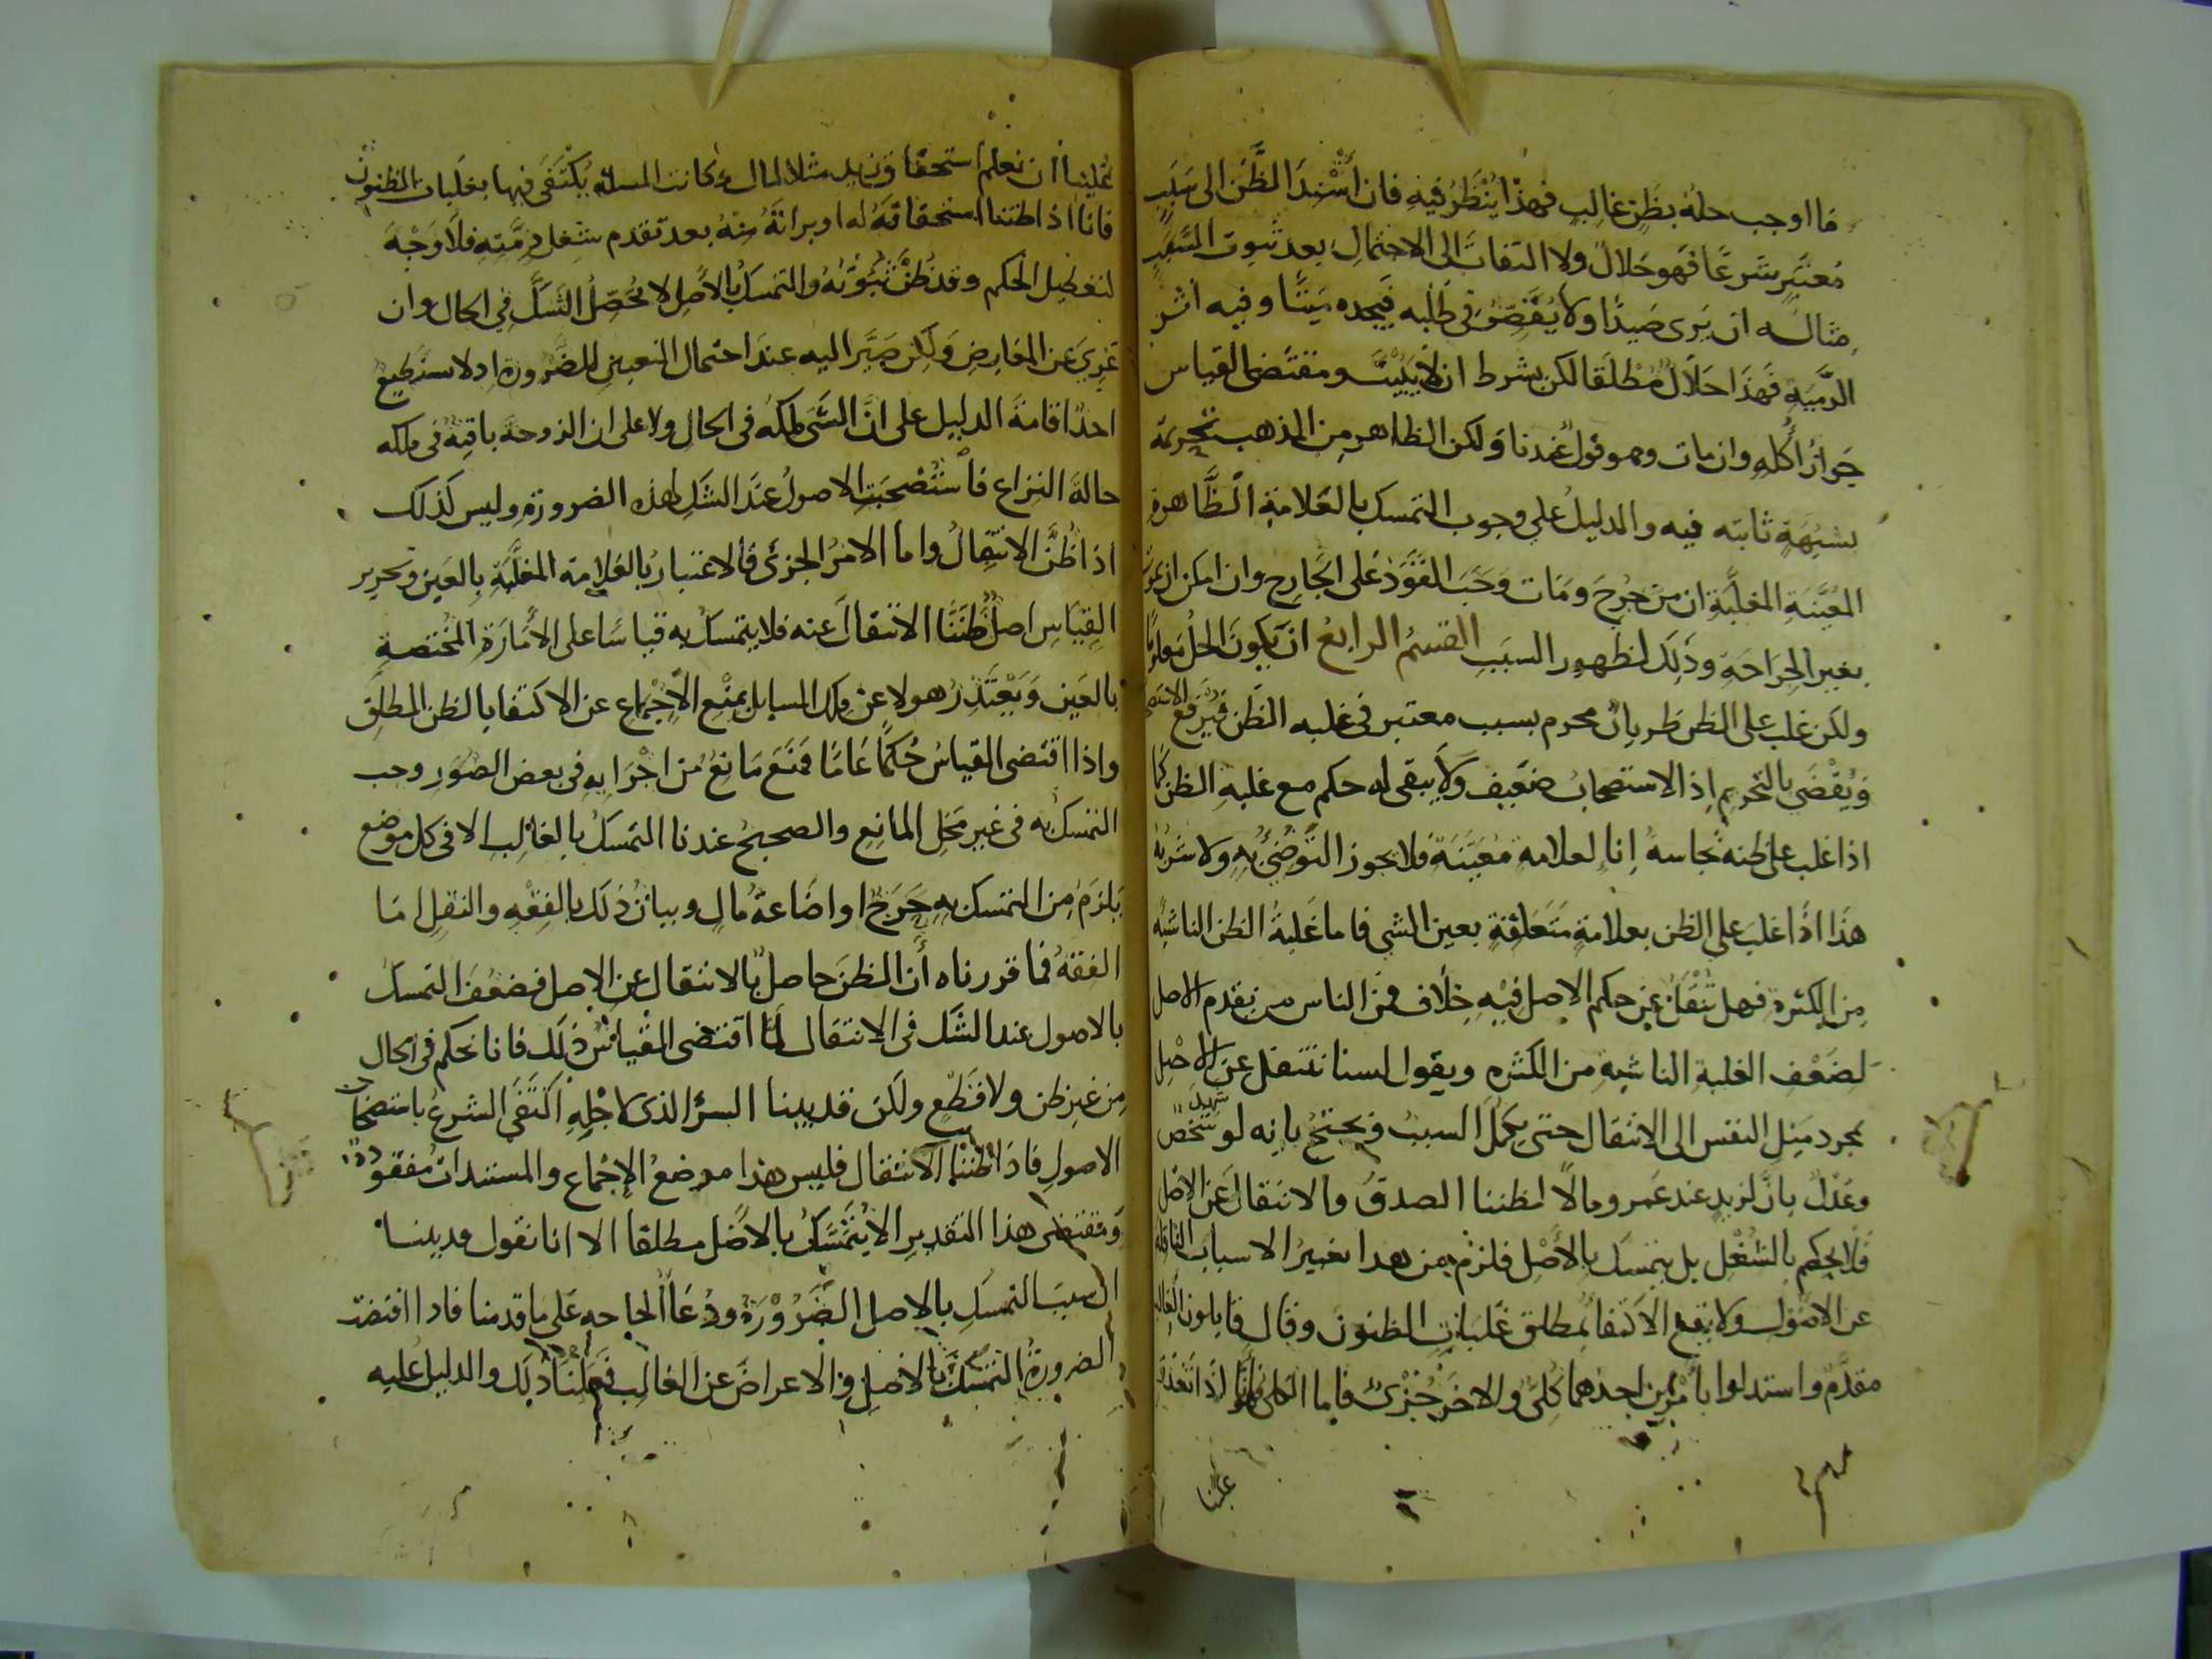 ما اوجب حله بظن غالب فهذا ينظر فيه فان اسند الظن الى سبب
معتبر شرعا فهو حلال ولا التفات الى الاحتمال بعد ثبوت السبب
مثاله ان يرى صيدا ولا يقصر في طلبه فيجده ميتا وفيه اثر
الرمية فهذا حلال مطلقا لكن بشرط ان لا يبيت ومقتضى القياس
جواز أكله وان مات وهو قول عندنا ولكن الظاهر من المذهب تحريمه
بشبهة ثابته فيه والدليل علي وجوب التمسك بالعلامة الظاهرة
المعينة المغلبة ان من جرح ومات وجب القود على الجارح وان امكن ان يموت
بغير الجراحة وذلك لظهور السبب القسم الرابع ان يكون الحل معلوما
ولكن غلب على الظن طريان محرم بسبب معتبر في غلبه الظن فيرفع الاستصحاب
ويقضي بالتحريم اذ الاستصحاب ضعيف ولا يبقى له حكم مع غلبة الظن كما
اذا غلب على ظنه نجاسة إناء لعلامة معينة فلا يجوز التوضئ به ولا شربه
هذا اذا غلب على الظن بعلامة متعلقة بعين الشي فاما غلبة الظن الناشيه
من الكثرة فهل تنقل عن حكم الاصل فيه خلاف فمن الناس من يقدم الاصل
لضعف الغلبة الناشية من الكثره ويقول لسنا ننتقل عن الاصل
بمجرد ميل النفس الى الانتقال حتى يكمل السبب ويحتج بانه لو شهد شخص
وعدل بان لزيد عند عمرو مالا لظننا الصدق والانتقال عن الاصل
فلا يحكم بالشغل بل يتمسك بالأصل فلزم من هدا تغيير الاسباب الناقلة
عن الاصول ولا يقع الاكتفا بمطلق غلبات الظنون وقال قايلون الغالب
مقدم واستدلوا بأمرين احدهما كلي والاخر جزئ فاما الكلي فإنا اذا تعذر
علينا
علينا ان نعلم استحقاق زيد مثلا لمال وكانت المسلة يكتفى فيها بغلبات الظنون
فانا اذا ظننا استحقاقه له او براته منه بعد تقدم شغل ذمته فلا وجه
لتعطيل الحكم وقد ظن ثبوته والتمسك بالأصل لا يحصل الشك في الحال وان
عري عن المعارض ولكن صير اليه عند احتمال التعيين للضرورة اذ لا يستطيع
احد اقامة الدليل على ان الشي ملكه في الحال ولا على ان الزوجة باقية في ملكه
حالة النزاع فاستصحبت الاصول عند الشك لهذه الضرورة وليس كذلك
اذا ظن الانتقال واما الامر الجزئ فالاعتبار بالعلامة المغلبة بالعين وتحرير
القياس اصل ظننا الانتقال عنه فلا يتمسك به قياسا على الأمارة المختصة
بالعين ويعتذر هولا عن ملك المسايل بمنع الاجماع عن الاكتفا بالظن المطلق
واذا اقتضى القياس حكما عاما فمنع مانع من اجرايه في بعض الصور وجب
التمسك به في غير محل المانع والصحيح عندنا التمسك بالغالب الا في كل موضع
يلزم من التمسك به حرج او اضاعة مال وبيان ذلك بالفقه والنقل اما
الفقه فما قررناه أن الظن حاصل بالانتقال عن الاصل فضعف التمسك
بالاصول عند الشك في الانتقال لما اقتضى القياس ذلك فانا نحكم في الحال
من غير ظن ولا قطع ولكن قد بينا السر الذي لاجله اكتفى الشرع باستصحاب
الاصول فاذا ظننا الانتقال فليس هذا موضع الاجماع والمستندات مفقودة
ومقتضى هذا التقدير الا يتمسك بالاصل مطلقا الا انا نقول قد بينا
ان سبب التمسك بالاصل الضرورة ودعا الحاجه على ما قدمنا فاذا اقتضت
الضرورة التمسك بالاصل والاعراض عن الغالب فعلنا ذلك والدليل عليه